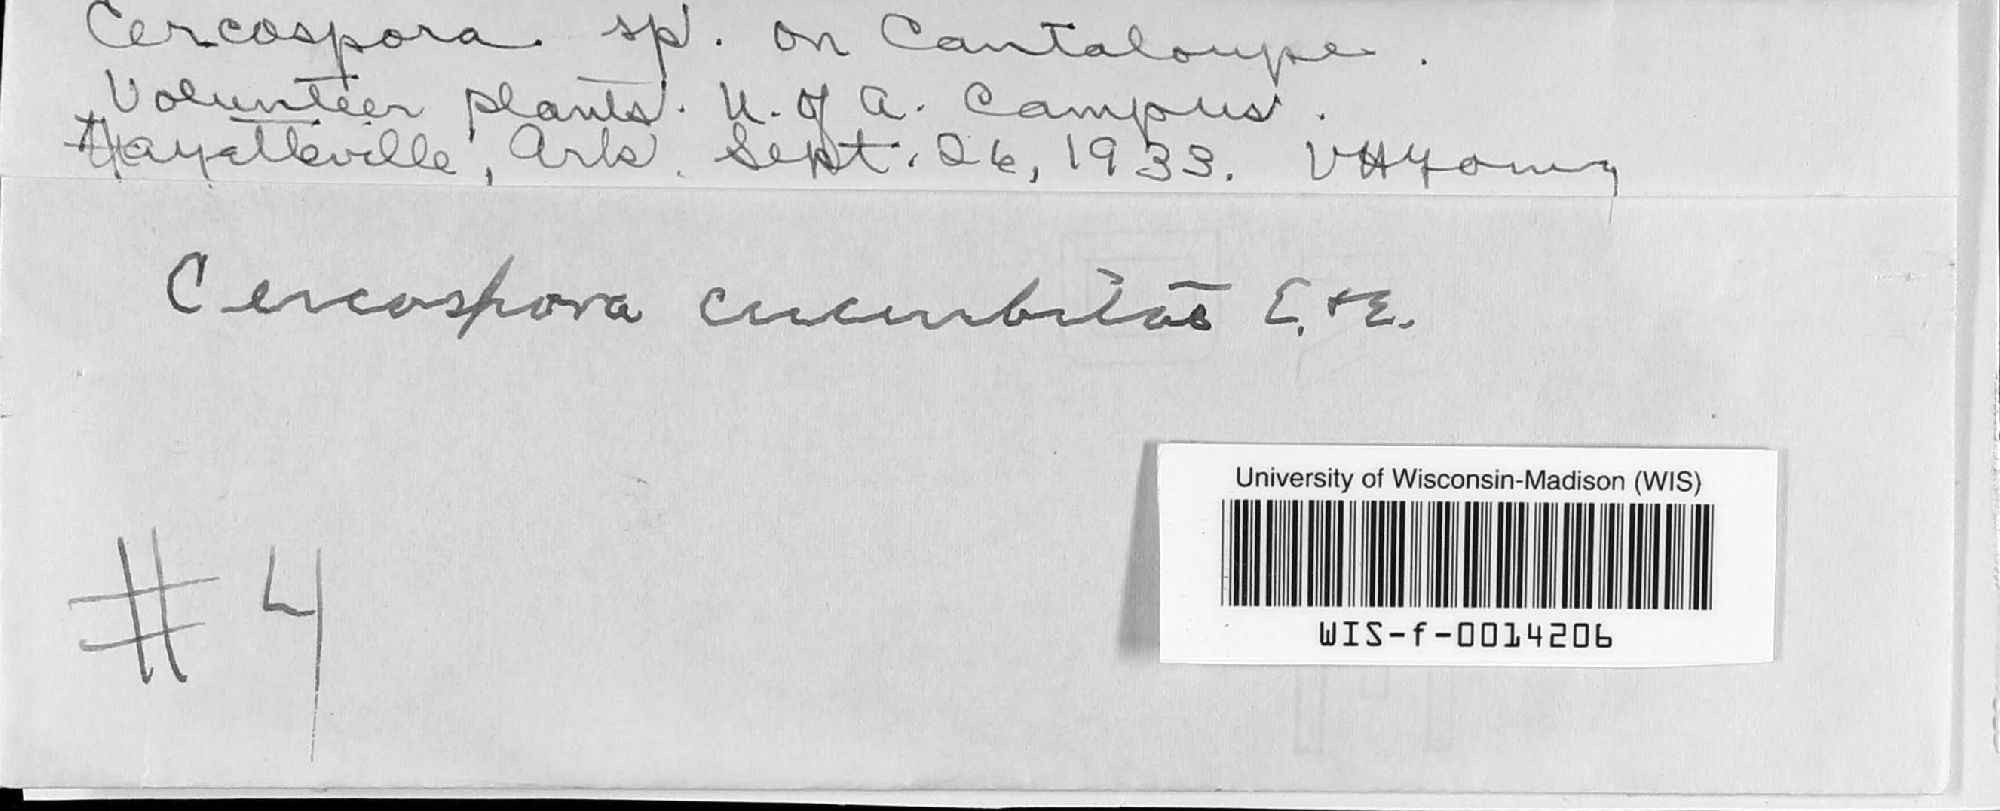 Cercospora sp. on Cantaloupe.
Volunteer plants. U. of A. Campus.
Fayetteville, Ark. Sept. 26, 1933. VHYoung
Cercospora cucurbitae E. & E.
#4
University of Wisconsin-Madison (WIS)
WIS-f-0014206